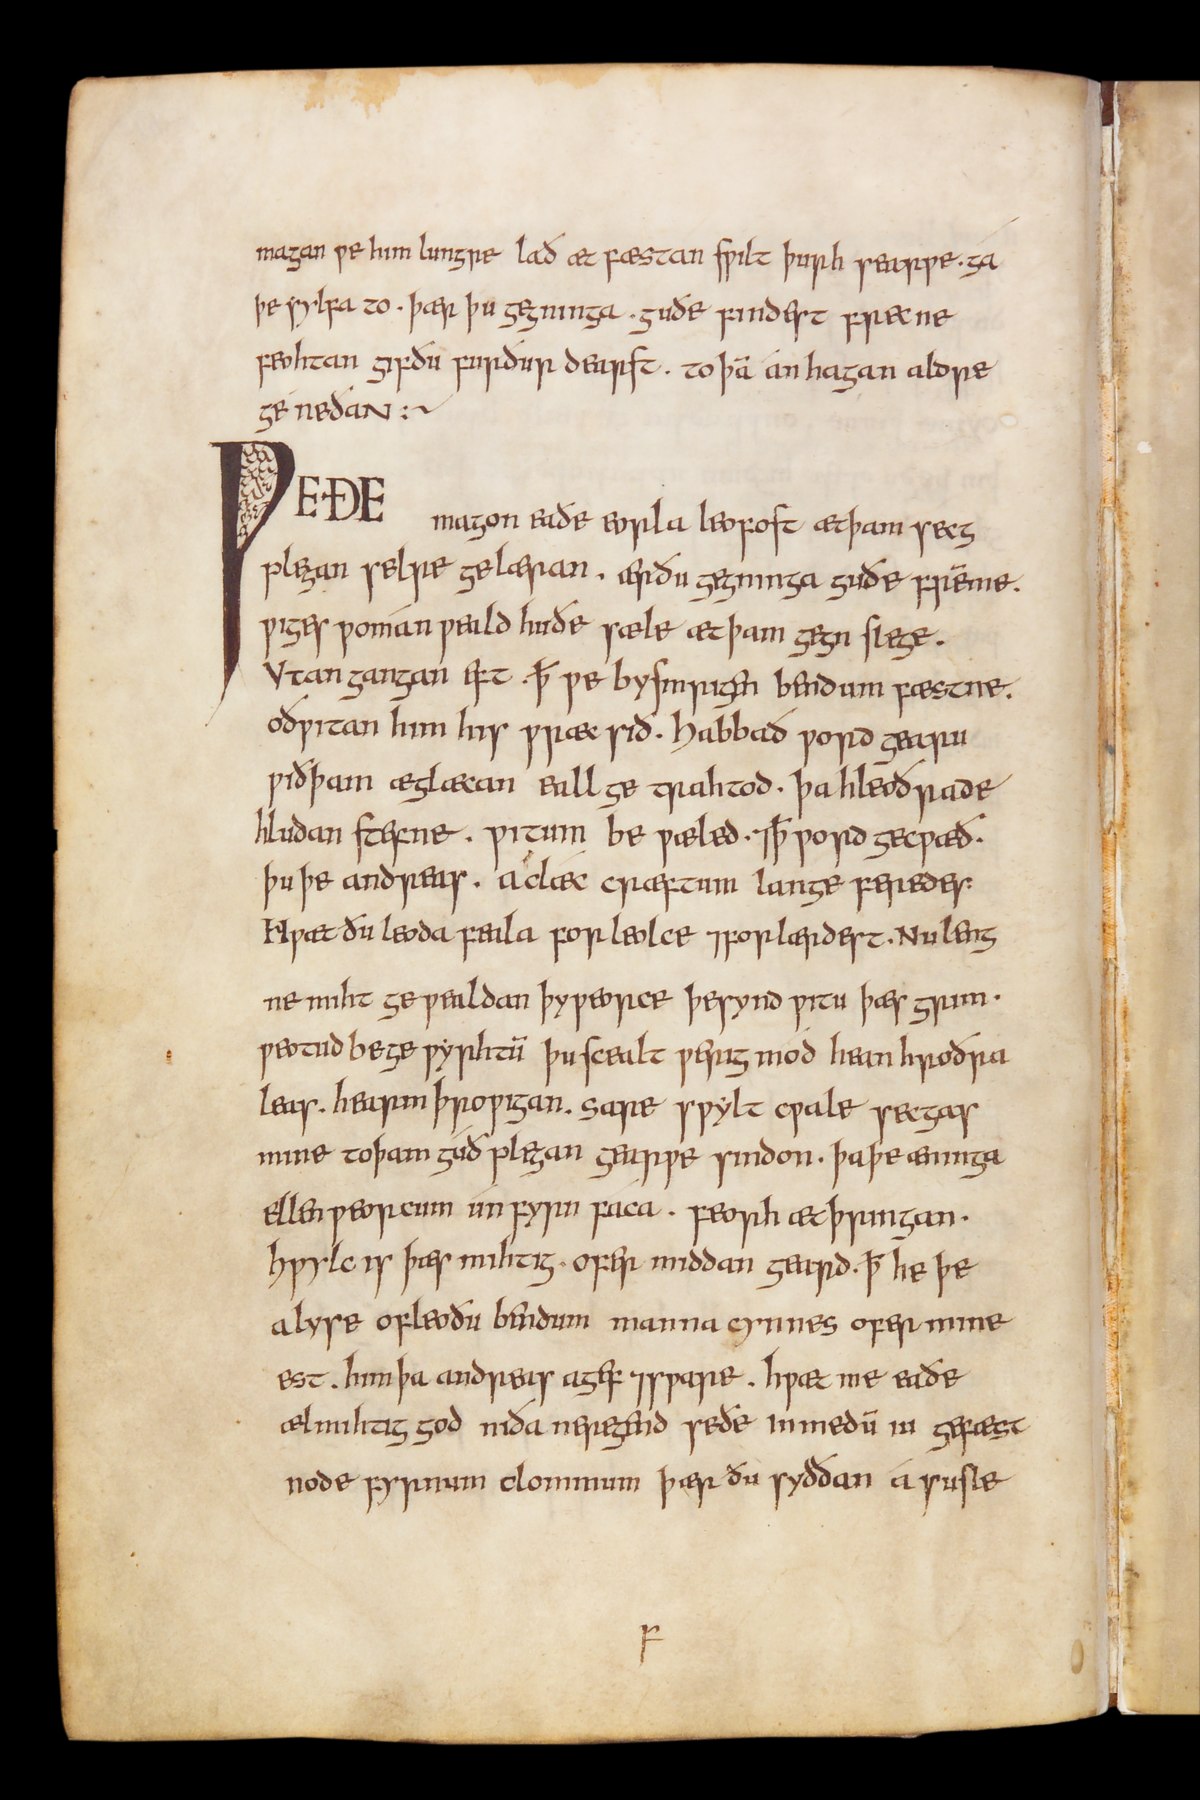 magan ƿe him lungre lað ætfæstan ſpilt þurh searƿe · ga
þe sylfa to · þær þu gegninga · guðe findest frecne
feohtan gif ðu furður dearſt · to þā án hagan aldre
ge neðaN :~
ǷE·ÐE
magon eaðe eorla leofoſt æt þam secg
plegan selre gelæran · ær ðu gegninga guðe fremme ·
ƿiges ƿomán ƿeald hu ðe sæle æt þam gegn ſlege ·
Vtan gangan eft · ꝥ ƿe byſmrigen bendum fæstne ·
oðƿitan him his ƿræc sið · Habbað ƿord gearu
ƿið þam æglæcan eall ge trahtod · þa hleoðrade
hludan ſtefne · ƿitum be ƿæled · ⁊ ꝥ ƿord gecƿæð ·
þu þe andreas · aclæc cræftum lange feredes
Hƿæt ðu leoda feala forleolce ⁊ forlærdest · Nu leng
ne miht ge ƿealdan þy ƿeorce þe synd ƿitu þæs grim ·
ƿeotud be ge ƿyrhtū þu ſcealt ƿerig mód hean hroðra
leas · hearm þroƿigan · Sare sƿylt cƿale secgas
mine to þam gúð plegan gearƿe sindon · þa þe æninga
ellen ƿeorcum ún fyrn fáca · feorh æt þringan ·
hƿylc is þæs mihtig · ofer middan geard · ꝥ he þe
alyse of leoðu bendum manna cynnes ofer mine
est · him þa andreas agef ⁊sƿare · hƿæt me eaðe
ælmihtig god niða neregend se ðe in niedū iu gefæst
node fyrnum clommum þær ðu syððan á suſle
F